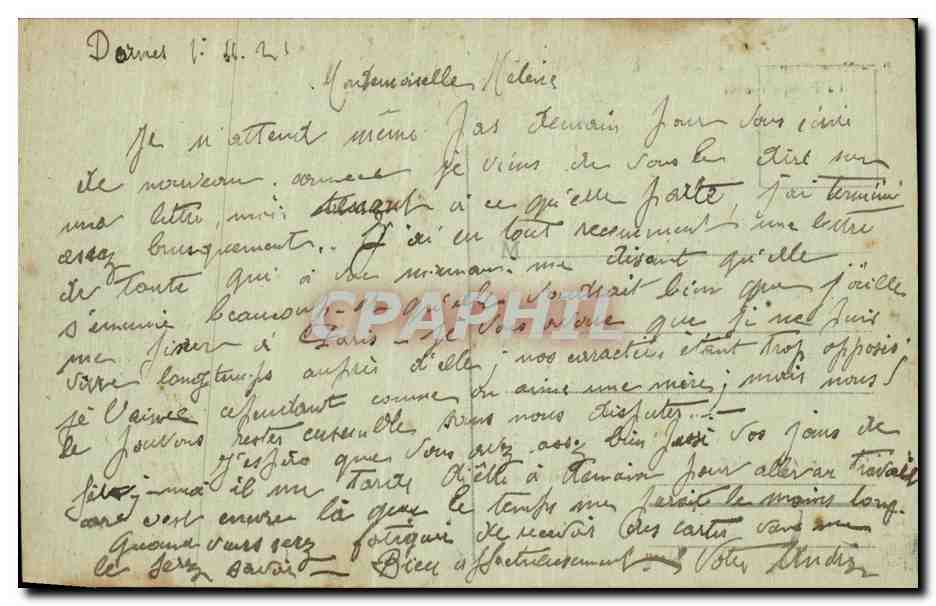 Dornes 1- 11. 21
Mademoiselle Hélène
Je n'attend même pas demain pour vous écrire
de nouveau. comme je viens de vous le dire sur
une lettre, mais tenant à ce qu'elle parte, j'ai terminé
assez brusquement.. J'ai eu tout recemment une lettre
de tante qui a me disant qu'elle
s'ennuie beaucoup qu'elle voudrait bien que j'aille
me fixer à Paris - je vous avoue que je ne puis
vivre longtemps auprès d'elle; nos caractères étant trop opposés;
je l'aime cependant comme on aime une mère; mais nous
le pouvons rester ensemble sans nous disputer...-
J'espère que vous avez assez bien passé vos jours de
fête; moi il me tarde d'être à demain pour aller au travail
car c'est encore là que le temps me parait le moins long.
Quand vous serez fatiguée de recevoir des cartes vous me
le ferez savoir - Bien affectueusement Votre
CPAPHIL